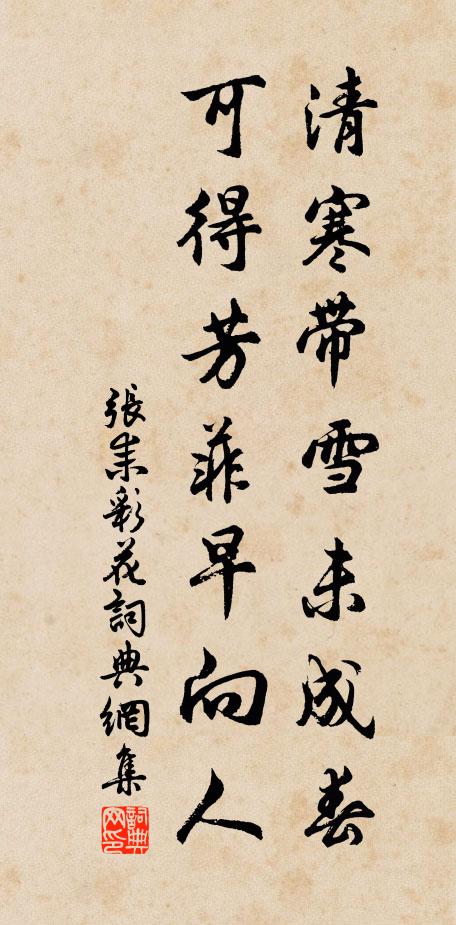 清寒带雪未成春
可得芳菲早向人
張耒彩花詞典網集
詞典网印